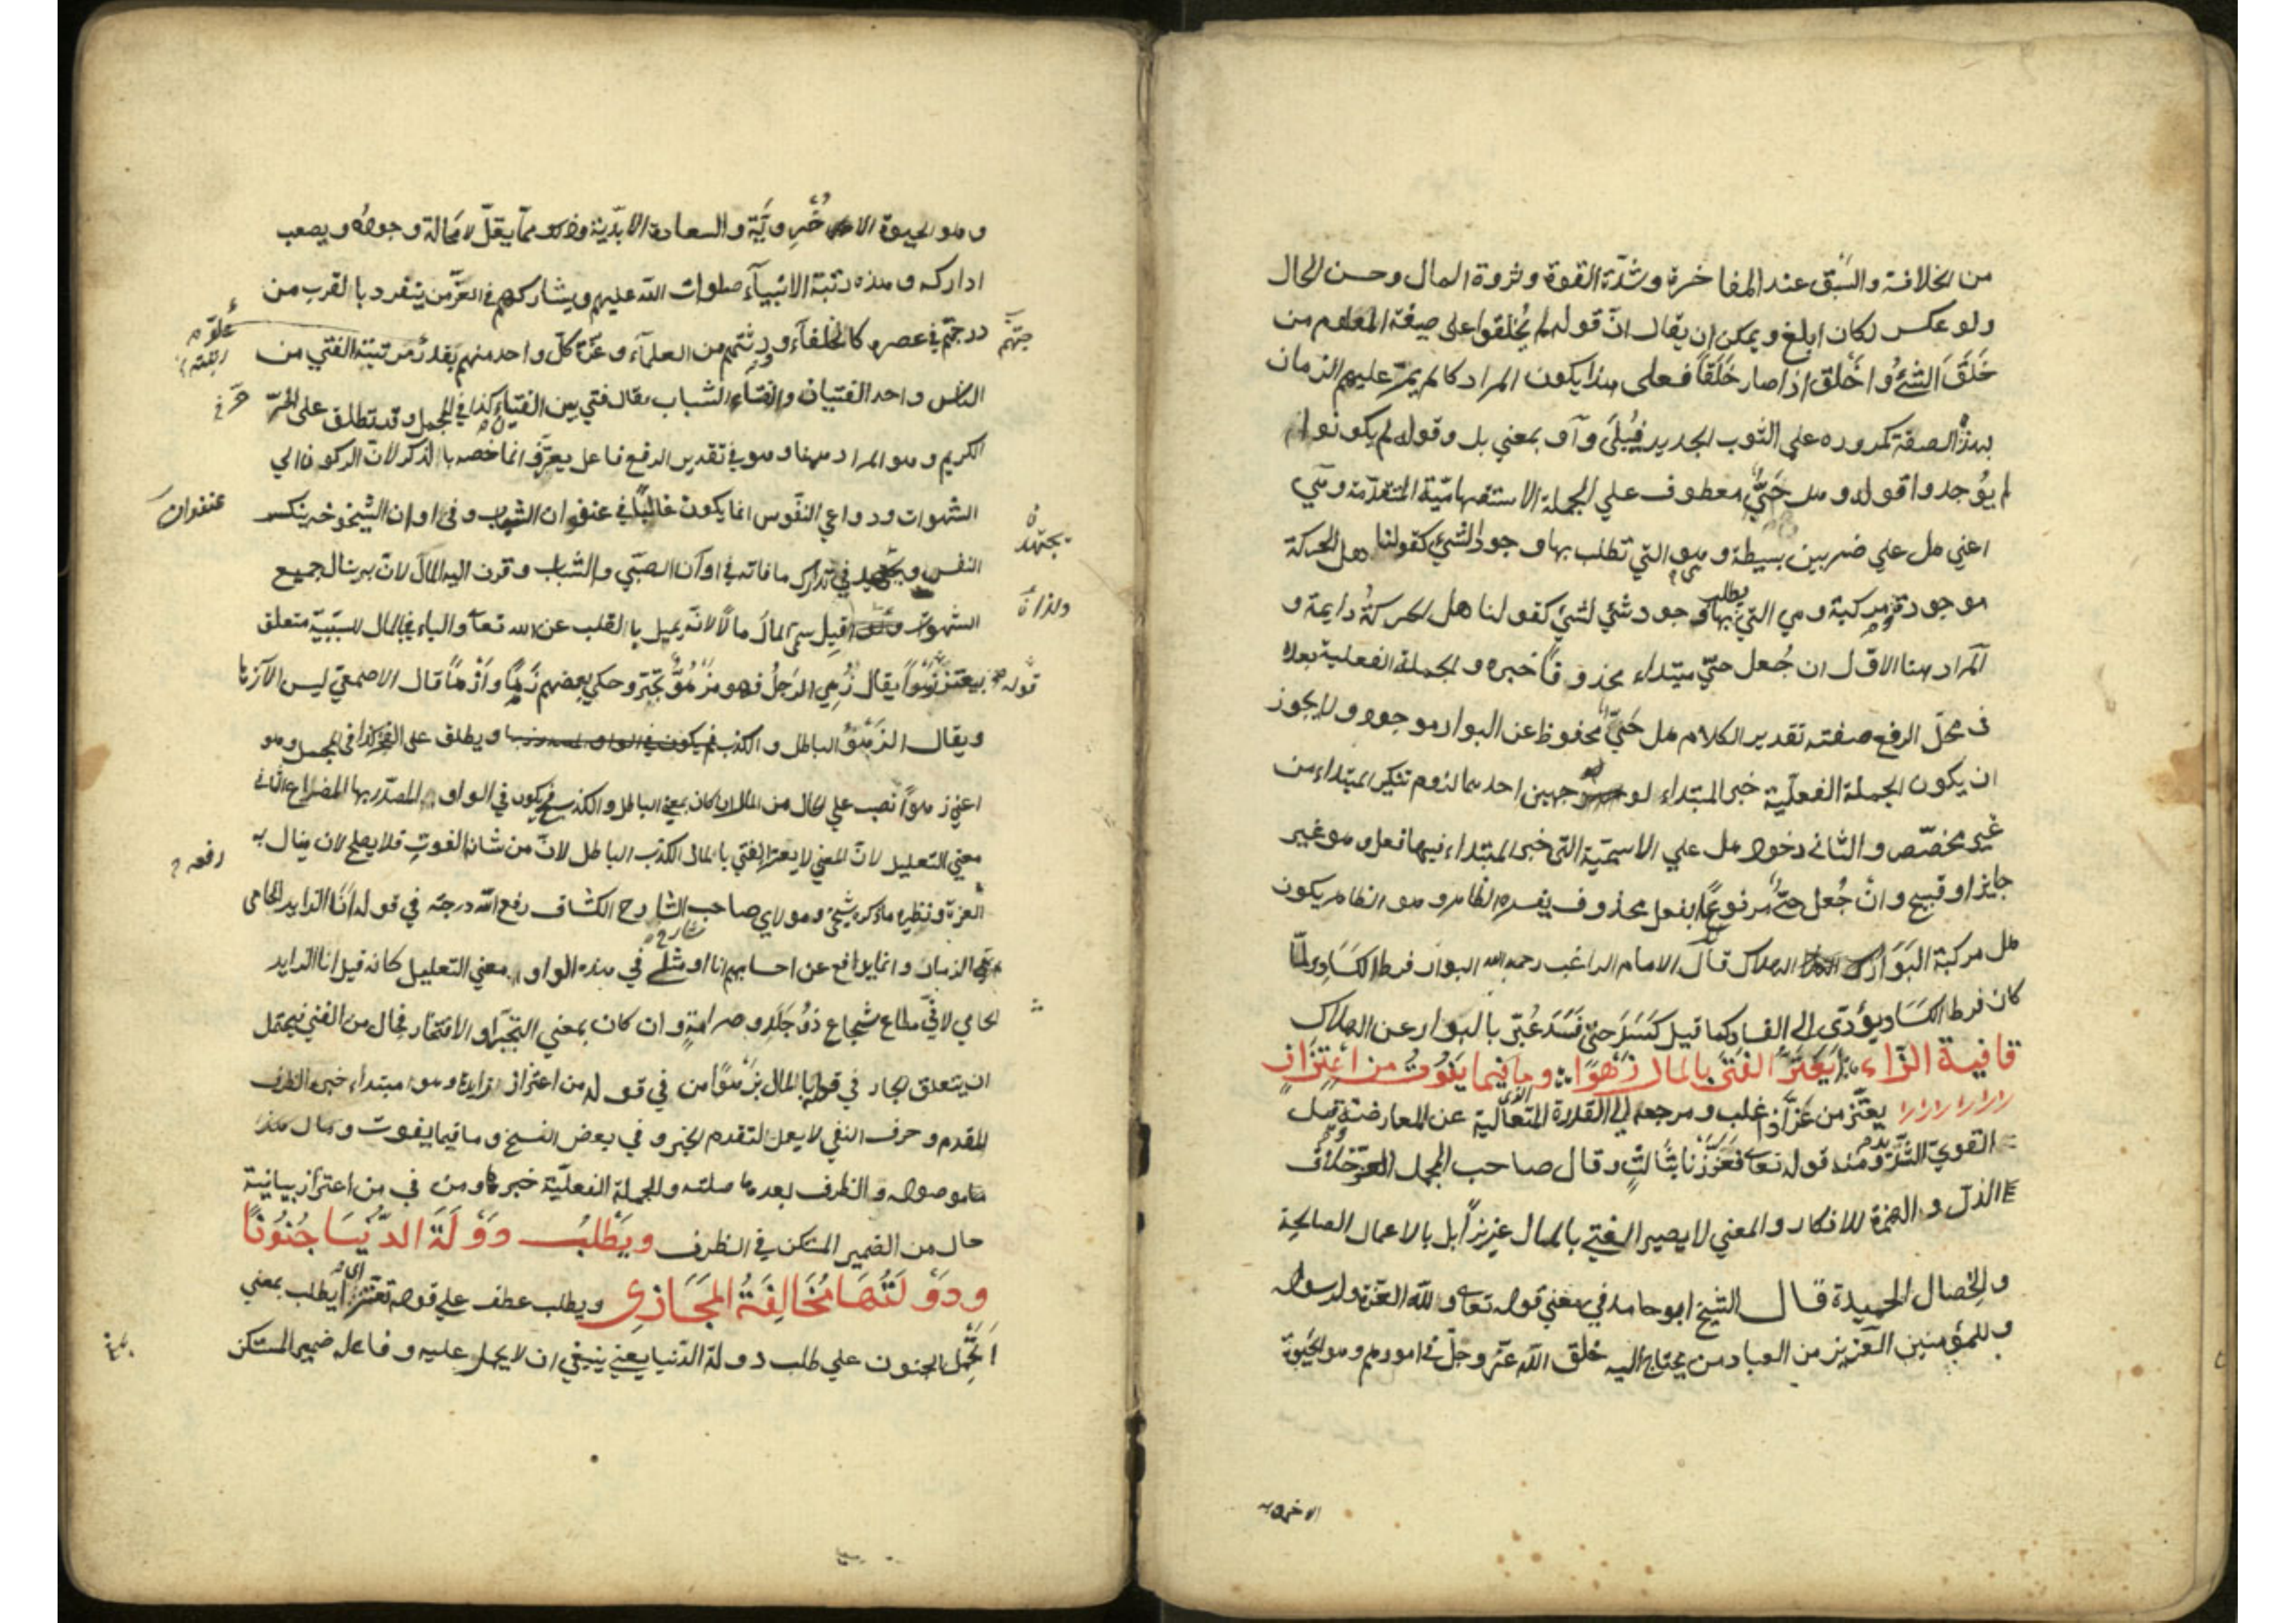 من الخلاقة والسبق عند المفاخرة وشدّة القوة وثروة المال وحسن الحال
ولو عكس لكان ابلغ ويمكن ان يقال انّ قوله لم يُخلقوا على صيغة المعلوم من
خَلَقَ الشئُ واخلق اذا صار خَلَقاً فعلى هذا يكون المراد كا لم يمرّ عليهم الزمان
بهذه الصفة كمروره على الثوب الجديد فيُبلَى وآو بمعني بل وقوله لم يكونوا
لم يوُجدوا قوله وهل حَيٌّ معطوف علي الجملة الاستفهاميّة المتقدّمة وهي
اعني هل علي ضربين بسيطة وهي التي تطلب بها وجود الشئ كقولنا هل الحركة
موجودة ومركبة وهي التي يطلب بها وجود شئ لشئ كقولنا هل الحركةُ دايمة و
المراد هنا الاوّل ان جُعل حيّ مبتداء محذوفاً خبره والجملة الفعلية بعده
في محلّ الرفع صفته تقدير الكلام هل حَيٌّ محفوظ عن البوار موجود ولا يجوز
ان يكون الجملة الفعلّية خبر المبتداء لوجهين احدهما لزوم تنكير المبتداء من
غير مخصّص والثاني دخول هل علي الاسميّة التي خبر المبتداء فيها فعل وهو غير
جايز او قبيح وانْ جُعل حيٌّ مرفوعًا بفعل محذوف يفسره الظاهر وهو الظاهر يكون
هل مركبة البَوَارُ الهلاك قال الامام الراغب رحمه الله البوار فرط الكَسَادِ ولمّا
كان فرط الكسَاد يؤدّي الى الفساد كما قيل كَسَدَ حتى فَسَدَ عُبّر بالبوار عن الهلاك
قافية الزّاء اَيَعْتَزُّ الفَتَى بالمال زَهْوًا وما فيما يَفُوتُ من اعْتِزَازِ
يعتّز من عَزَّ اذا غلب ومرجعه الي القدرة المتعالية عن المعارضة وقيل
القويّ الشديد ومنه قوله تعالى فَعَزَّزْنَا بثَالِثٍ وقال صاحب المجمل العزّ خلاف
الذلّ والهمزة للانكار والمعني لا يصير الفتي بالمال عزيزاً بل بالاعمال الصالحة
والخِصال الحميدة قال الشيخ ابو حامد في معني قوله تعالى ولله العزّة ولرسوله
وللمؤمنين العزيز من العباد من يحتاج اليه خلق الله عزّ وجلّ في امورهم وهو الحيوة
الاخروية
وهو الحيوة الاخرويَّة والسعادة الابديّة وذلك ممّا يقلّ لا محالة وجوده ويصعب
ادراكه وهذه رتبة الانبيآء صلوات الله عليهم ويشاركهم في العزّ من يتفرد بالقرب من
درجتهم في عصرهم كالخلفآء وورثتهم من العلمآء وعزّة كلّ واحد منهم بقدر مرتبته الفتي من
الناس واحد الفتيان والفتاء الشباب يقال فتي بين الفتاء كذا في المجمل وقد تطلق على الحُرّ
الكريم وهو المراد ههنا وهو في تقدير الرفع فاعل يعتزّ وانما خصه بالذكر لانّ الركون الي
الشهوات ودواعي النفوس انما يكون غالبًا في عنفوان الشباب وفي اوان الشيخوخة ينكسر
عنفوان
النفس ويجتهد في تدارك ما فاته في اوان الصبّي والشباب وقرن اليه المال لانّ به ينال جميع
يجتهد
الشهوات ولذا قيل سمى المالُ مالًا لانّه يميل بالقلب عن الله تعالى والباء في بالمال للسببيّة متعلق
ولذا
بيعتز زَهْواً يقال زُهِي الرَجلُ فهو مَزْهُوٌّ تكبّر وحكي بعضهم زَهَا وازْهَا قال الاصمعيّ ليس الا زُها
قوله
ويقال الزَهْوُ الباطل والكذب ويطلق على الفخر كذا في المجمل وهو
اعني زهواً نصب علي الحال من المال ان كان بمعني الباطل والكذب فح يكون في الواو المصدّر بها المصراع الثاني
معني التعليل لانّ المعني لا يعتز الفتي بالمال الكذب الباطل لانّ من شانه الفوت فلا يصلح لان ينال به
العزة ونظيره ما ذكره شيخي ومولاي صاحب الشارح الكشاف رفع الله درجته في قوله انا الذايد الحامي
الذمار وانما يدافع عن احسابهم انا او مثلي في هذه الواو معني التعليل كانه قيل انا الذايد
الحامي لانّي مطاع شجاع ذوُ جَلَدٍ وصرامةٍ وان كان بمعني التجبّر او الافتخار فحال من الفتي فيحتمل
ان يتعلق الجار في قوله بالمال بزَهْوًا من في قوله من اعتزاز زايدة وهو مبتداء خبره الظرف
المقدم وحرف النفي لا يعمل لتقدم الخبر وفي بعض النسخ وما فيما يفوت ومال هكذا
ما موصولة والظرف بعدها صلته والجملة الفعليّة خبرها ومن في من اعتزاز بيانية
حال من الضمير المستكن في الظرف ويَطْلُبُ دَوْلَةَ الدّنْيَا جُنُونًا
ودَوْلَتُهَا مُخَالِفَةُ المَجَازِي ويطلب عطف علي قوله يعتزّ اي أيطلب بمعني
اَيَحْمِل الجنون علي طلب دولة الدّنيا يعني ينبغي ان لا يحمل عليه وفاعله ضمير المستكن